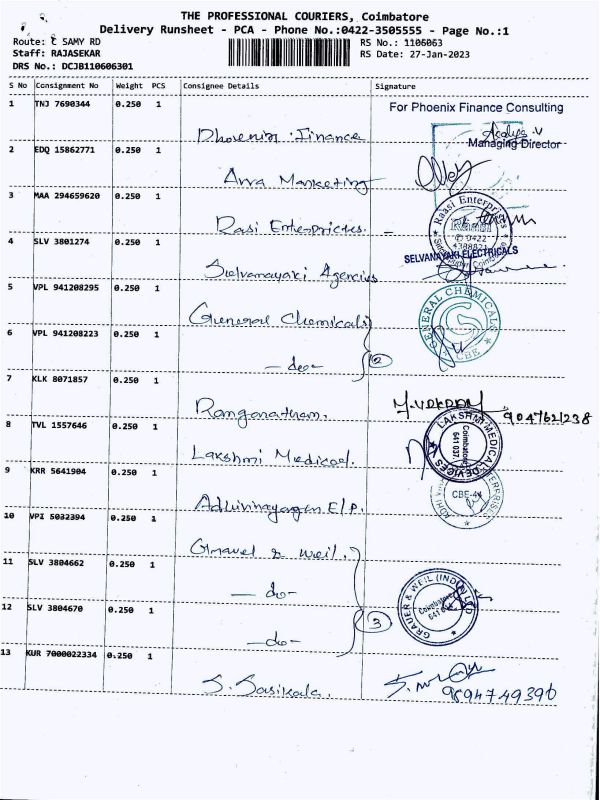 THE PROFESSIONAL COURIERS, Coimbatore
Delivery Runsheet - PCA - Phone No.:0422-3505555 - Page No.:1
Route: C SAMY RD
RS No.: 1106063
Staff: RAJASEKAR
RS Date: 27-Jan-2023
DRS No.: DCJB110606301
S No Consignment No Weight PCS Consignee Details Signature
1 TNJ 7690344 0.250 1
For Phoenix Finance Consulting
Phoenix Finance
Managing Director
2 EDQ 15862771 0.250 1
Arra Marketing
3 MAA 294659620 0.250 1
Rasi Enterprices.
Raasi Enterprises
Raasi
✆ 0422
4388021
4 SLV 3801274 0.250 1
SELVANAYAKI ELECTRICALS
Selvanayaki Agencies
5 VPL 941208295 0.250 1
General Chemicals
GENERAL CHEMICALS
CBE
6 VPL 941208223 0.250 1
- do - 2
7 KLK 8071857 0.250 1
Ranganathan.
9047621238
8 TVL 1557646 0.250 1
Lakshmi Medical.
LAKSHMI MEDICAL DEVICES
Coimbatore
641 037
9 KRR 5641904 0.250 1
Adhivinayagan E/P.
CBE-44
10 VPI 5032394 0.250 1
Gravel & weil.
11 SLV 3804662 0.250 1
- do -
GRAUER & WEIL (INDIA) LTD
Coimbatore
12 SLV 3804670 0.250 1
- do - 3
13 KUR 7000022334 0.250 1
S. Sasikala.
9894749390